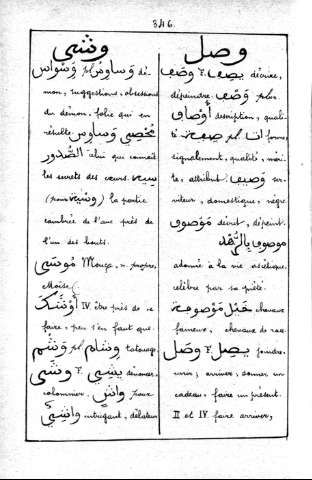 346.
وصل
وشي
وصف F. يصف décrire,
dépeindre. وصف plur.
أوصاف description, quali-
té صفة plur. ات forme,
signalement, qualité, méri-
te, attribut. وصيف ser-
viteur, domestique, nègre
موصوف décrit, dépeint.
موصوف بالزهد
adonné à la vie ascétique,
célèbre par sa piété.
خيل موصوفة chevaux
fameux, chevaux de race.
وصل F. يصل joindre,
unir, arriver, donner un
cadeau, faire un présent.
II et IV. faire arriver,
وسواس pl. وساوس dé-
mon, suggestions, obsessions
du démon, folie qui en
résulte وساوس
الصدور celui qui connaît
les secrets des cœurs. سية
(pour وشية) la partie
cambrée de l'arc près de
l'un des bouts.
موسى Mouça, n. propre,
Moïse.
أوشك IV. être près de se
faire, peu s'en faut que.
وشم pl. وشام tatouage.
وشى F. يشي dénoncer,
calomnier. واش pour
واشي intrigant, délateur